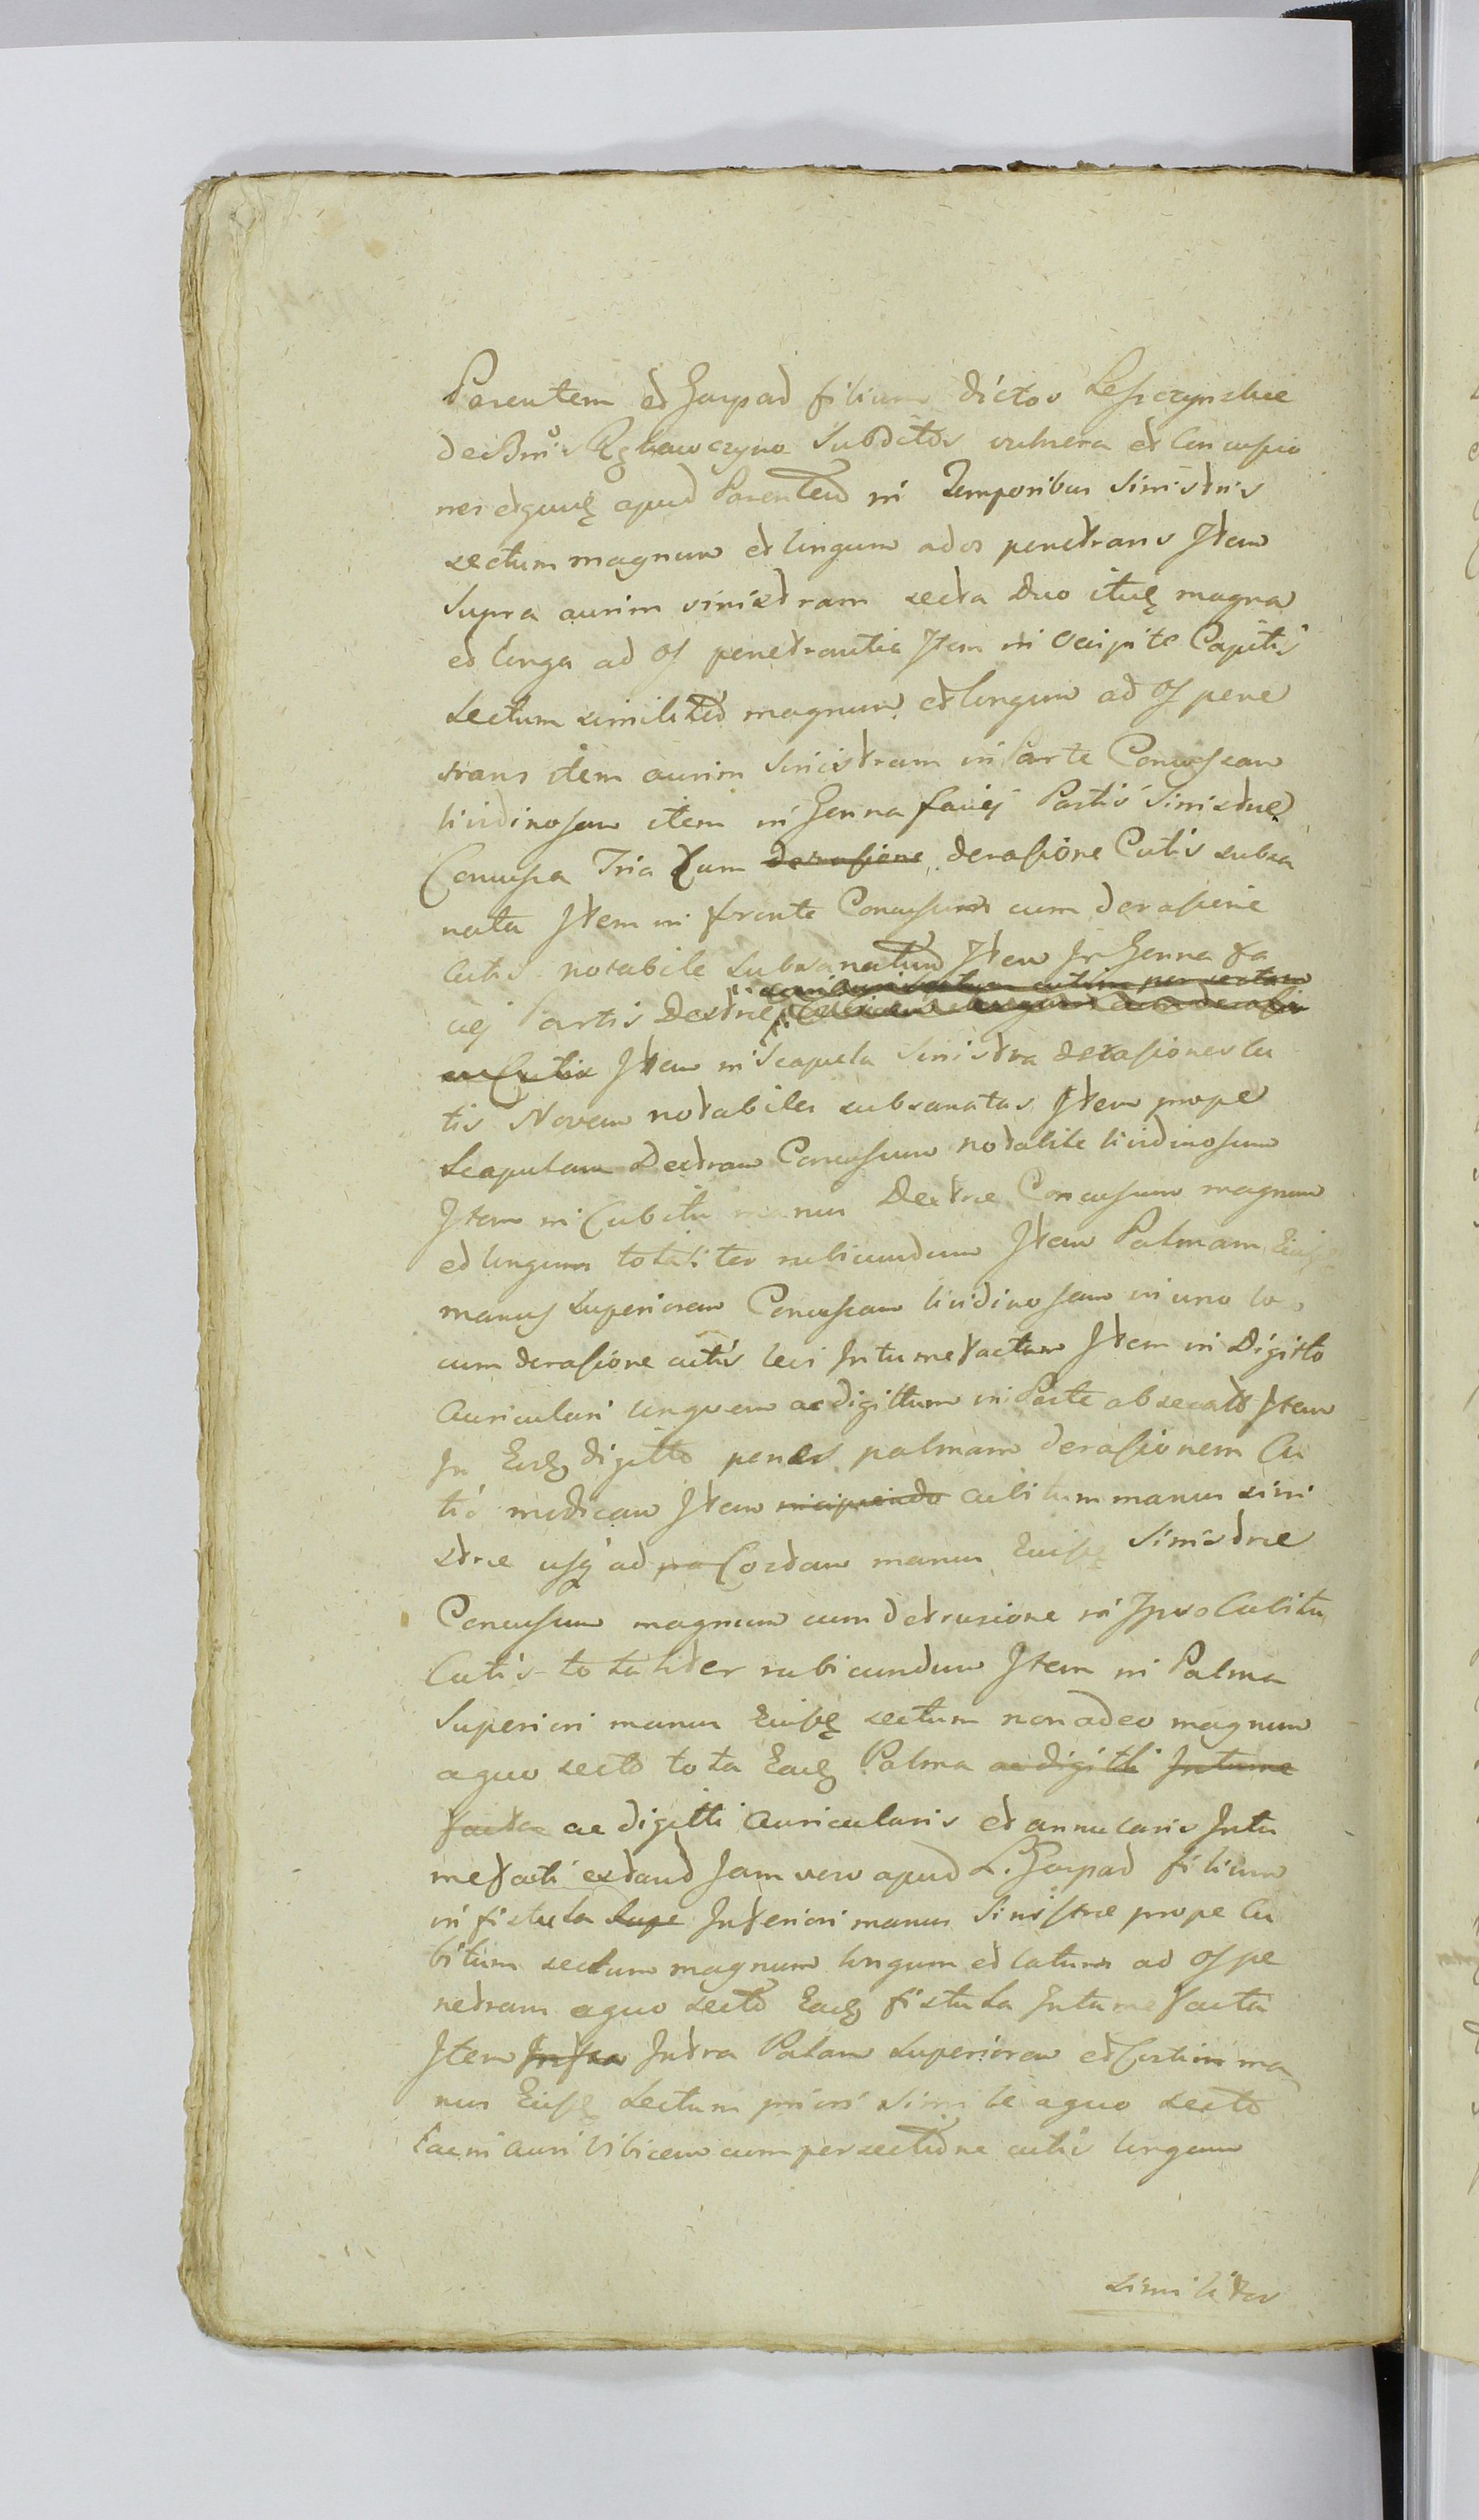 Parentem et Gaspad filium dictos Lesczynskie
de Bnis Rgkawczyno Subditos vulnera et Concusio
nes et quidę apud Parentem in Temporibus Sinistris
sectum magnum et longum ad os penetrans Item
Supra aurim sinistram secta Duo itidę magna
et longa ad os penetrantia Item in Occipite Capitis
Sectum similiter magnum et longum ad os pene
trans item aurim Sinistram in Parte Concussam
lividinosam item in Genna faciej Partis Sinistræ
Concussa Tria Cum derasione derasione Cutis subsa
nata Item in fronte Concussum cum derasione
Cutis notabile subsanatum Item In Genna fa
ciej Partis Dextræ
Cutis Item in Scapula Sinistra derasiones Cu
tis Novem notabiles subsanatas Item prope
Scapulam Dextram Concussum notabile lividinosum
Item in Cubitu manus Dextræ Concussum magnum
et longum totaliter rubicundum Item Palmam
manus Superiorem Concussam lividinosam in uno
cum derasione cutis levi Intumefactam Item in Digitto
Auriculari unguem ac digittum in Parte absecatto Item
In Eodę digitto penes palmam derasionem Cu
tis modicam Item incipiendo cubitum manus sini
stræ usq ad Costam manus Eiusdę Sinistræ
Concussum magnum cum detrusione in Ipso Cubitu
Cutis totaliter rubicundum Item in Palma
Superiori manus Eiusdę sectum non adeo magnum
a quo secto tota Eadę Palma ac digitti Intume
facta ac digitti Auricularis et annularis Intu
mefacti extand Jam vero apud L. Gaspad filium
in fistula Supe Inferiori manus Sinistræ prope Cu
bitum sectum magnum longum et latum ad os pe
netrans a quo secto Eadę fistula Intumefacta
Item Infra Intra Palmam Superiorem et Costim ma
nus Eiusdę Sectum priori simile a quo secto
auri Vibicem cum persectione cutis longam
similiter